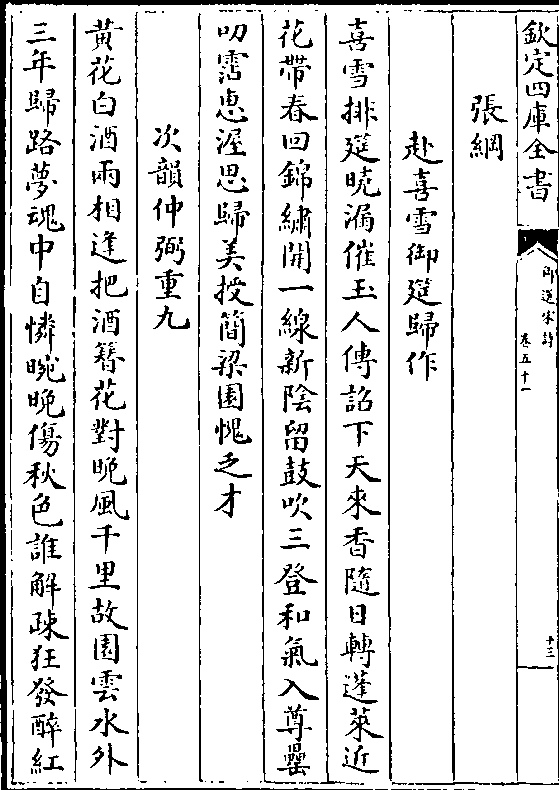 欽定四庫全書
御選宋詩
卷五十一
十三
張綱
赴喜雪御筵歸作
喜雪排筵曉漏催玉人傳詔下天來香隨日轉蓬萊近
花帶春回錦繡開一線新陰留鼓吹三登和氣入尊罍
叨霑惠渥思歸美授簡梁園愧乏才
次韻仲弼重九
黃花白酒兩相逢把酒簪花對晚風千里故園雲水外
三年歸路夢魂中自憐晼晚傷秋色誰解疎狂發醉紅